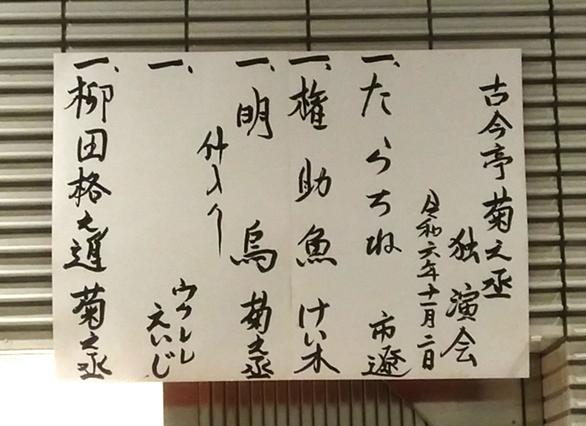 古今亭菊之丞
独演会
令和六年十一月二日
一、たらちね 市遼
一、権助魚 けい木
一、明烏 菊之丞
仲入り
一、 ウクレレえいじ
一、柳田格之進 菊之丞